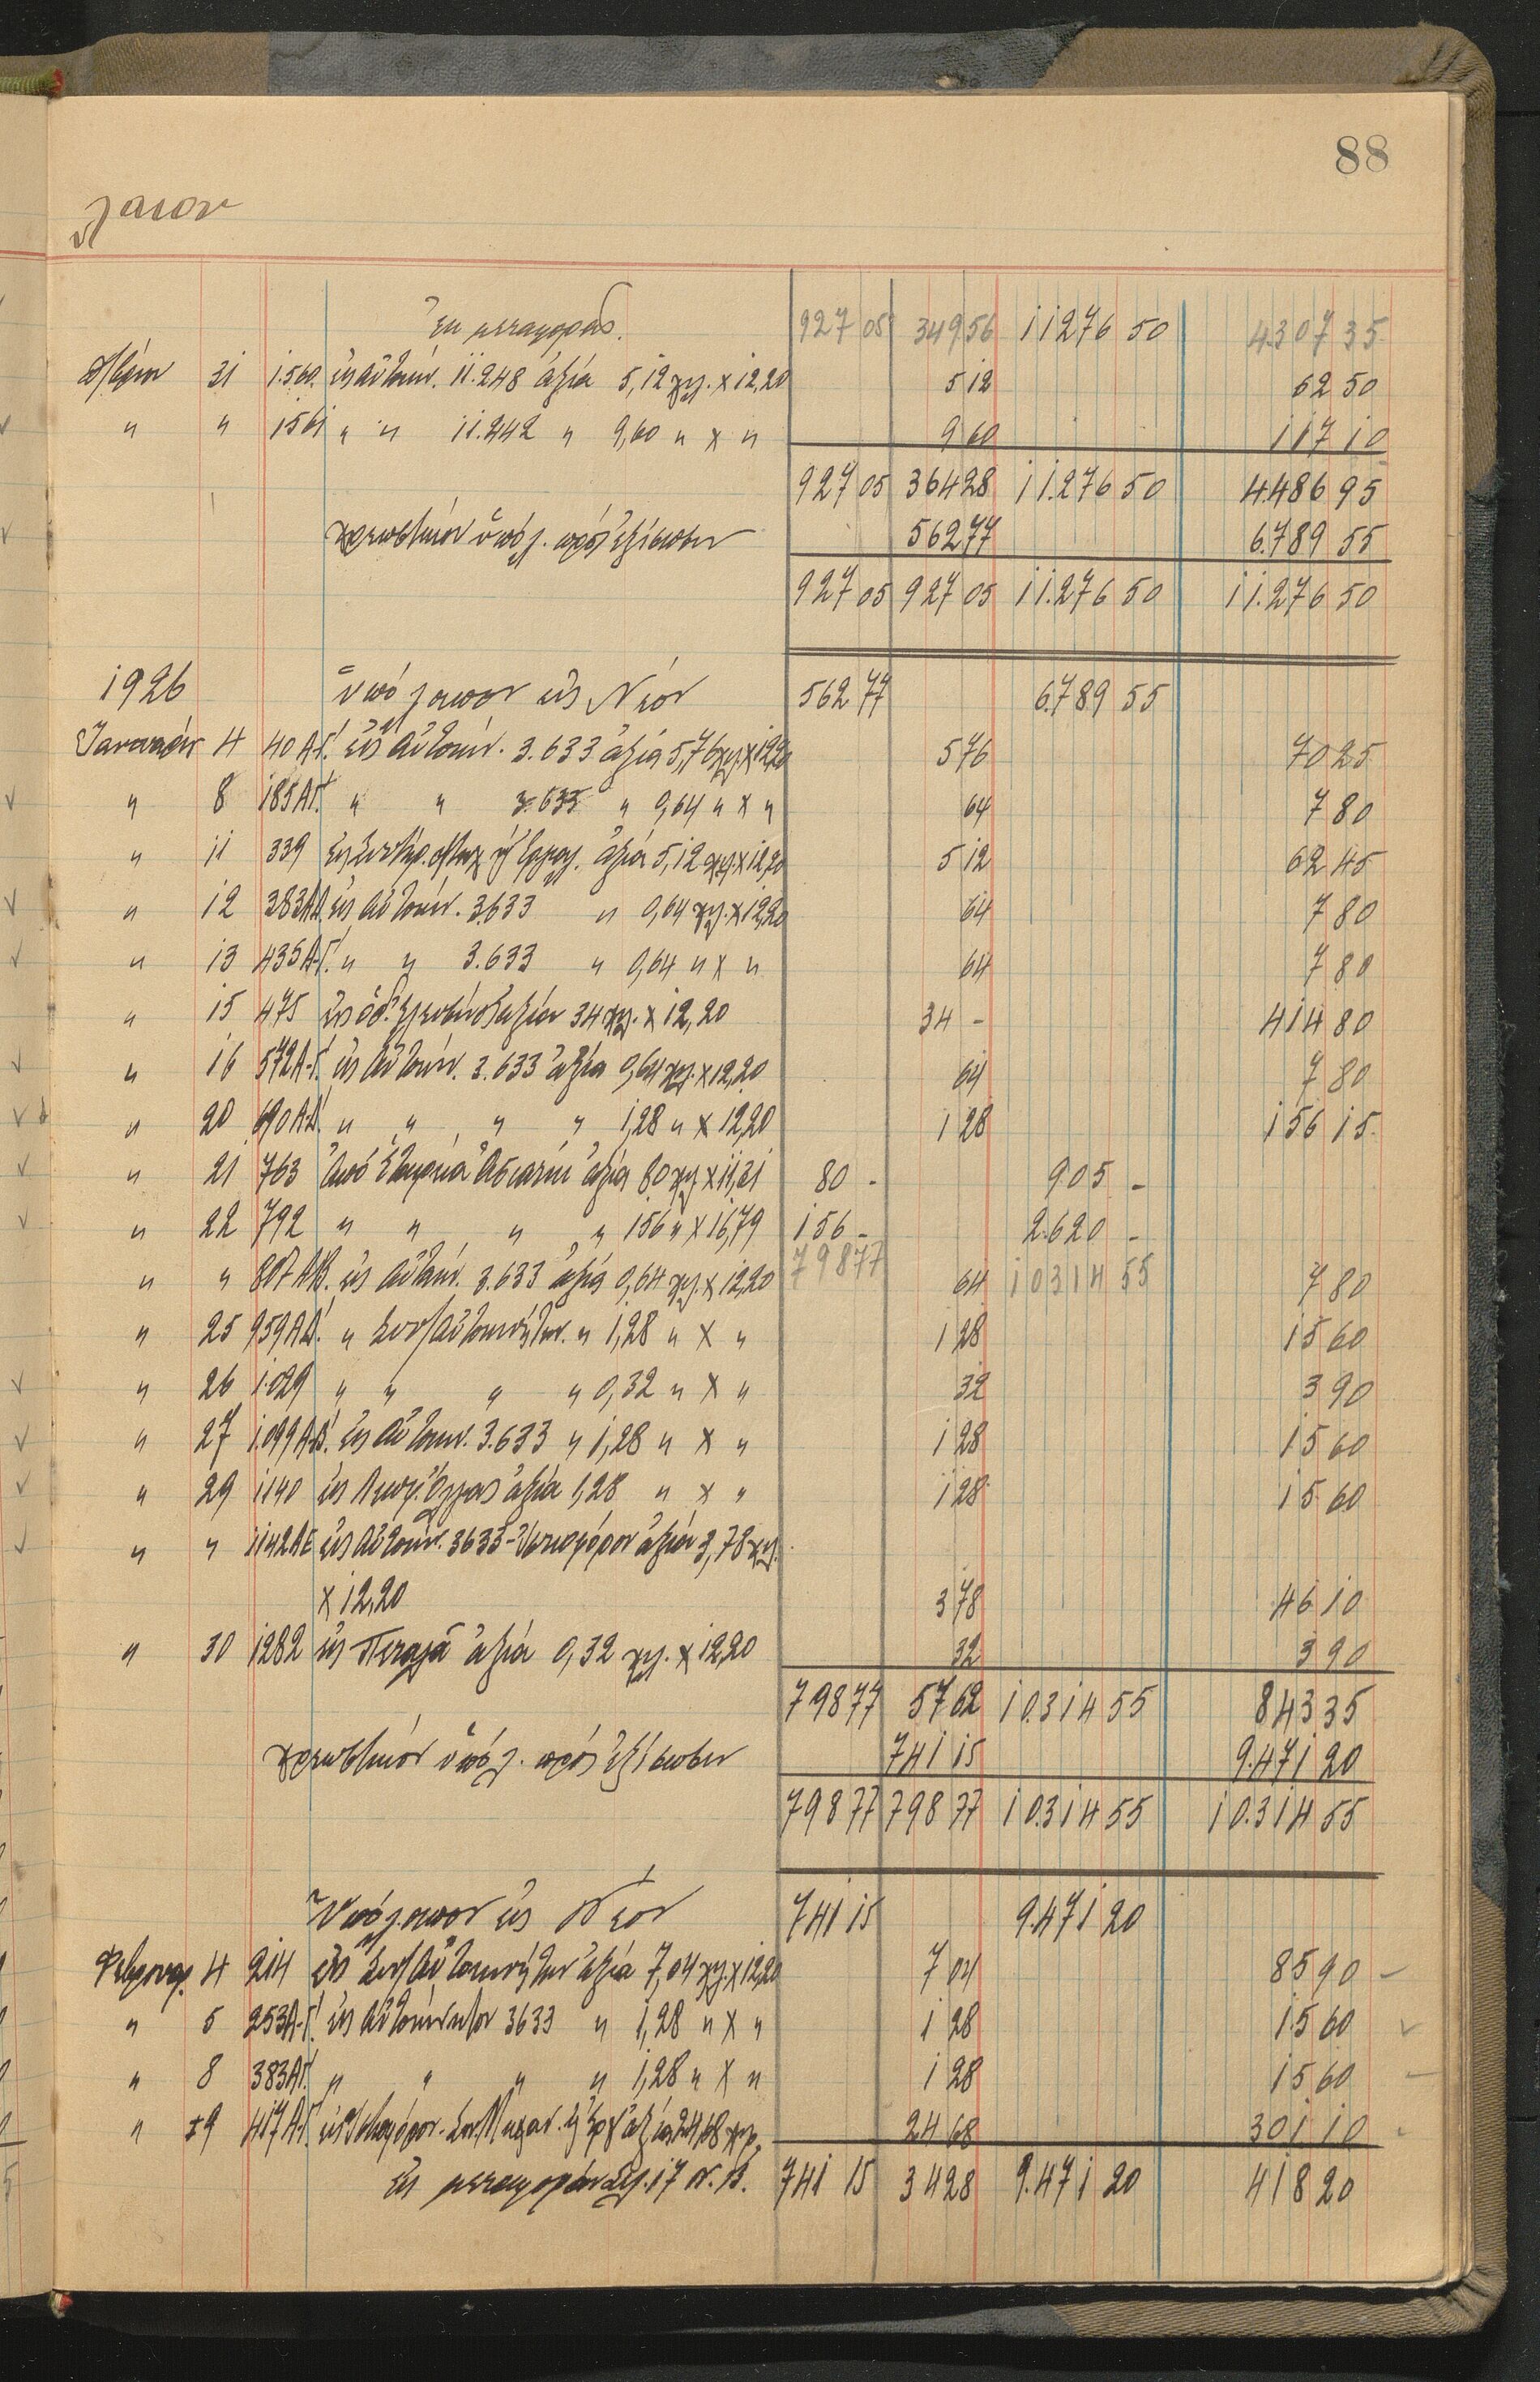 88
λαιον
Ἐκ μεταφορᾶς. 927 05 349 56 11276 50 4.307 35
31 1.560. εἰς αὐτοκίν. 11.248 ἀξία 5,12 χγ. x 12,20 5 12 62 50
" " 1561 " " 11.242 " 9,60 " x " 9 60 117 10
927 05 364 28 11.276 50 4.486 95
χρεωστικόν ὑπόλ. πρός ἐξίσωσιν 562 77 6.789 55
927 05 927 05 11.276 50 11.276 50
1926 Ὑπόλοιπον εἰς Νέον 562 77 6.789 55
Ἰανουαρίου 4 40 Α-Γ. εἰς Αὐτοκίν. 3.633 ἀξία 5,76 χγ. x 12,20 5 76 70 25
" 8 185 ΑΓ. " " 3.633 " 0,64 " x " 64 7 80
" 11 339 ἀξία 5,12 χγ. x 12,20 5 12 62 45
" 12 383 ΑΔ. εἰς Αὐτοκίν. 3.633 " 0,64 χγ. x 12,20 64 7 80
" 13 435 Α-Γ. " " 3.633 " 0,64 " x " 64 7 80
" 15 475 ἀξίαν 34 χγ. x 12,20 34 - 414 80
" 16 572 Α-Γ. εἰς Αὐτοκίν. 3.633 ἀξία 0,64 χγ. x 12,20 64 7 80
" 20 690 ΑΔ. " " " " 1,28 " x 12,20 1 28 156 15
" 21 763 Ἀπό Ἑταιρεία ἀξία 80 χγ x 11,31 80 - 905 -
" 22 792 " " " " 156 " x 16,79 156 - 2.620 -
" " 807 ΑΒ. εἰς Αὐτοκίν. 3.633 ἀξία 0,64 χγ. x 12,20 798 77 64 10314 55 7 80
" 25 959 ΑΔ. " " 1,28 " x " 1 28 15 60
" 26 1.029 " " " " 0,32 " x " 32 3 90
" 27 1.099 Α-Β. εἰς Αὐτοκιν. 3.633 " 1,28 " x " 1 28 15 60
" 29 1140 εἰς Λεωφ. Ὄλγας ἀξία 1,28 " x " 1 28 15 60
" " 1142 ΑΕ εἰς Αὐτοκίν. 3633 - ἀξίαν 3,78 χγ.
x 12,20 3 78 46 10
" 30 1282 εἰς ἀξία 0,32 χγ. x 12,20 32 3 90
798 77 57 62 10.314 55 843 35
χρεωστικόν ὑπόλ. πρός ἐξίσωσιν 741 15 9.471 20
798 77 798 77 10.314 55 10.314 55
Ὑπόλοιπον εἰς Νέον 741 15 9.471 20
Φεβρουαρ. 4 214 ἀξία 7,04 χγ. x 12,20 7 04 85 90
" 5 253 Α-Γ. εἰς Αὐτοκίνητον 3633 " 1,28 " x " 1 28 15 60
" 8 383 ΑΓ. " " " " 1,28 " x " 1 28 15 60
" 9 417 Α-Γ. ἀξία 24,68 χγρ. 24 68 301 10
Εἰς μεταφοράν Σελ. 17 Ν. Β. 741 15 34 28 9.471 20 418 20